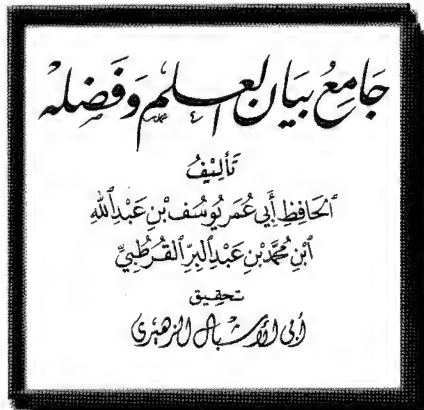 جَامِعُ بَيَانِ العِلمِ وَفَضلِهِ
تَأليْفُ
الحَافِظِ أَبِي عُمَر يُوسُف بْنِ عَبْدِاللهِ
ابْنِ مُحَمَّد بْنِ عَبْدِالبِرِّ القُرطُبيِّ
تحقيق
أبي الأشبال الزهيري